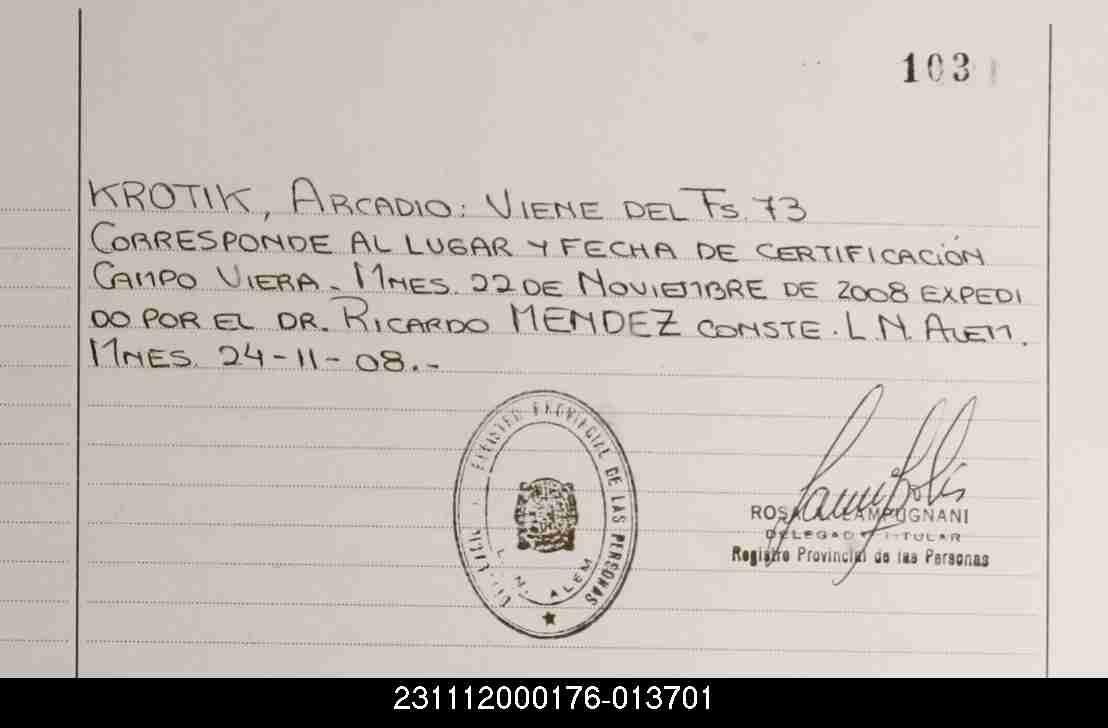 103
KROTIK, ARCADIO: VIENE DEL Fs. 73
CORRESPONDE AL LUGAR Y FECHA DE CERTIFICACIÓN
CAMPO VIERA - MNES. 22 DE NOVIEMBRE DE 2008 EXPEDI
DO POR EL DR. RICARDO MENDEZ CONSTE. L.N. ALEM.
MNES. 24-11-08.-
REGISTRO PROVINCIAL DE LAS PERSONAS
L. N. ALEM
LAMPUGNANI
TITULAR
Registro Provincial de las Personas
231112000176-013701